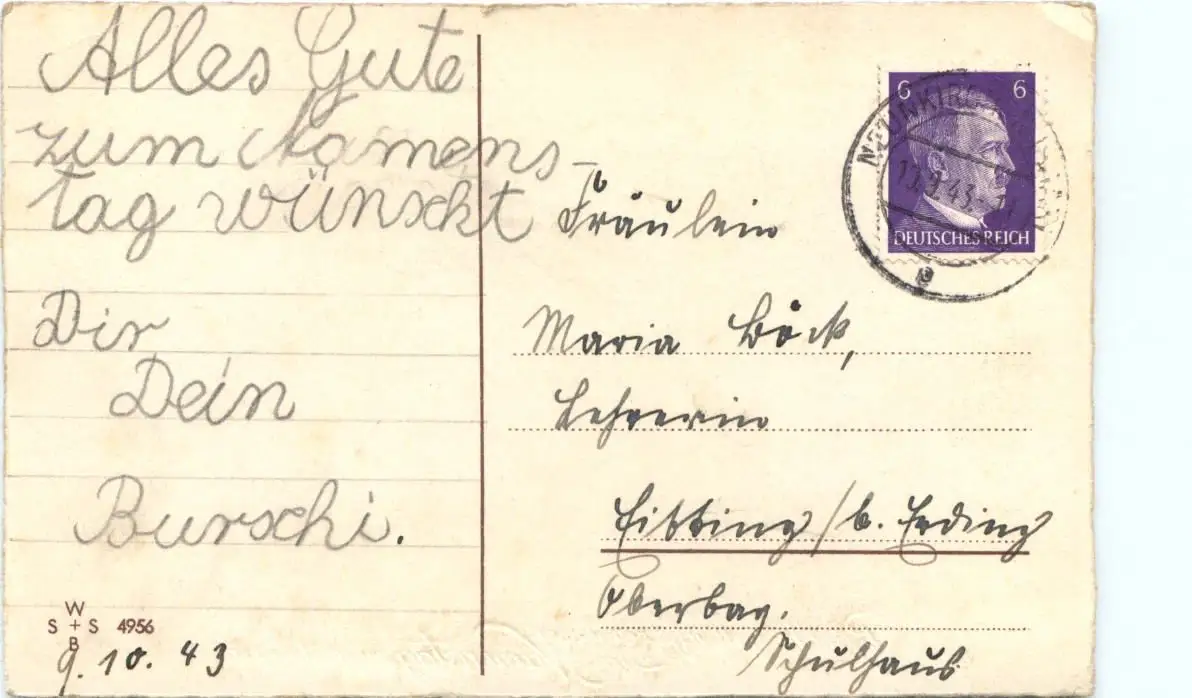 Alles Gute
zum Namens-
tag wünscht
Dir
Dein
Burschi.
W
S + S 4956
B
9. 10. 43
6 6
DEUTSCHES REICH
Fräulein
Maria Böck,
Lehrerin
Eitting / b. Erding
Oberbay.
Schulhaus